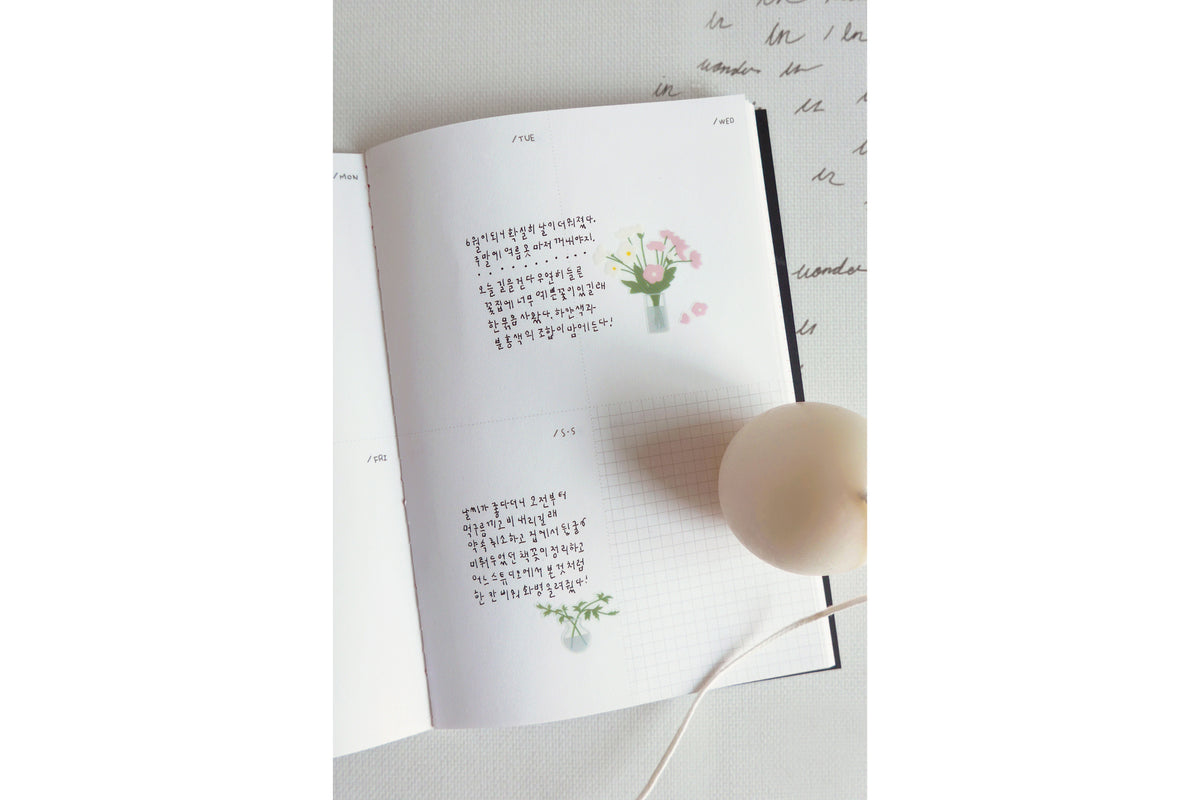 in
in
in / in
wonder in
in
in
in
in
wonder
in
/MON
/TUE
/WED
6월이 되니 확실히 날이 더워졌다.
주말에 여름옷 마저 꺼내야지.
오늘 길을 걷다 우연히 들른
꽃집에 너무 예쁜 꽃이 있길래
한 묶음 사왔다. 하얀색과
분홍색의 조합이 맘에 든다!
/FRI
/S-S
날씨가 좋다더니 오전부터
먹구름끼고 비 내리길래
약속 취소하고 집에서 뒹굴
미뤄두었던 책꽂이 정리하고
어느 스튜디오에서 본것처럼
한 칸 비워 화병 올려줬다!